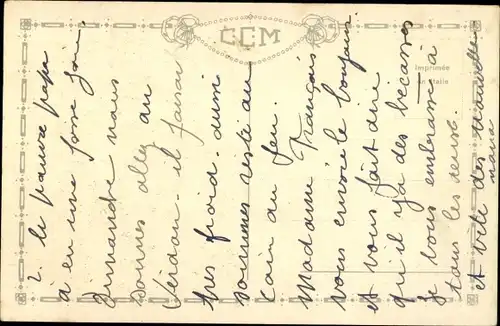 CCM
Imprimée
en Italie
2. le pauvre papa
à eu une forse foi
Dimanche nous
sommes alles au
Verdon. il faisai
tres froid. dumi
sommes resté au
coin du feu.
Madame Français
vous envoie le bonjour
et vous fait dire
qu'il ya des bécasses
je vous embrasse
tous les deux.
et vite des nouvelles